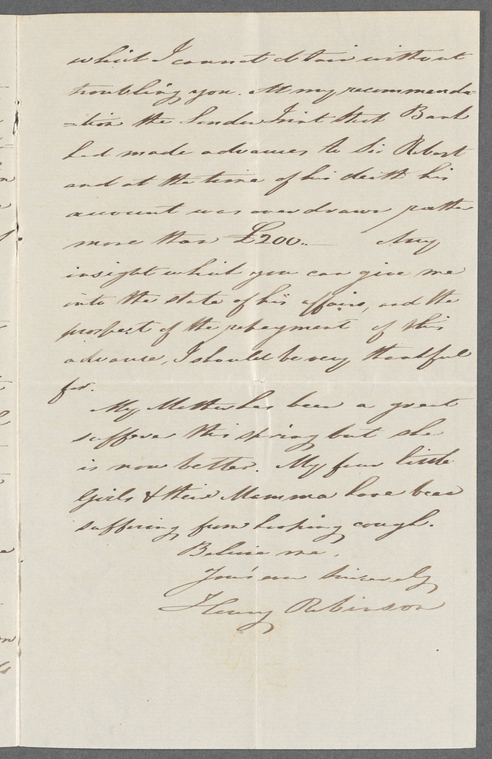 which I cannot obtain without
troubling you. At my recommenda
=tion the London Joint Stock Bank
had made advances to Sir Robert
and at the time of his death his
account was overdrawn rather
more than £200. — Any
insight which you can give me
into the state of his affairs, and the
prospect of the repayment of this
advance, I should be very thankful
for.
My Mother has been a great
sufferer this spring but she
is now better. My four little
Girls & their Mamma have been
suffering from hooping cough.
Believe me,
Your's very sincerely
Henry Robinson